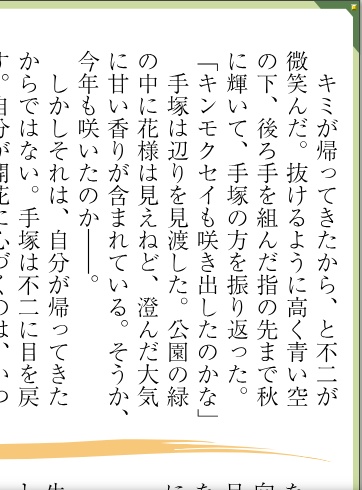 キミが帰ってきたから、と不二が
微笑んだ。抜けるように高く青い空
の下、後ろ手を組んだ指の先まで秋
に輝いて、手塚の方を振り返った。
「キンモクセイも咲き出したのかな」
手塚は辺りを見渡した。公園の緑
の中に花様は見えねど、澄んだ大気
に甘い香りが含まれている。そうか、
今年も咲いたのか――。
しかしそれは、自分が帰ってきた
からではない。手塚は不二に目を戻
す。自分が開花に心づくのは、いつ